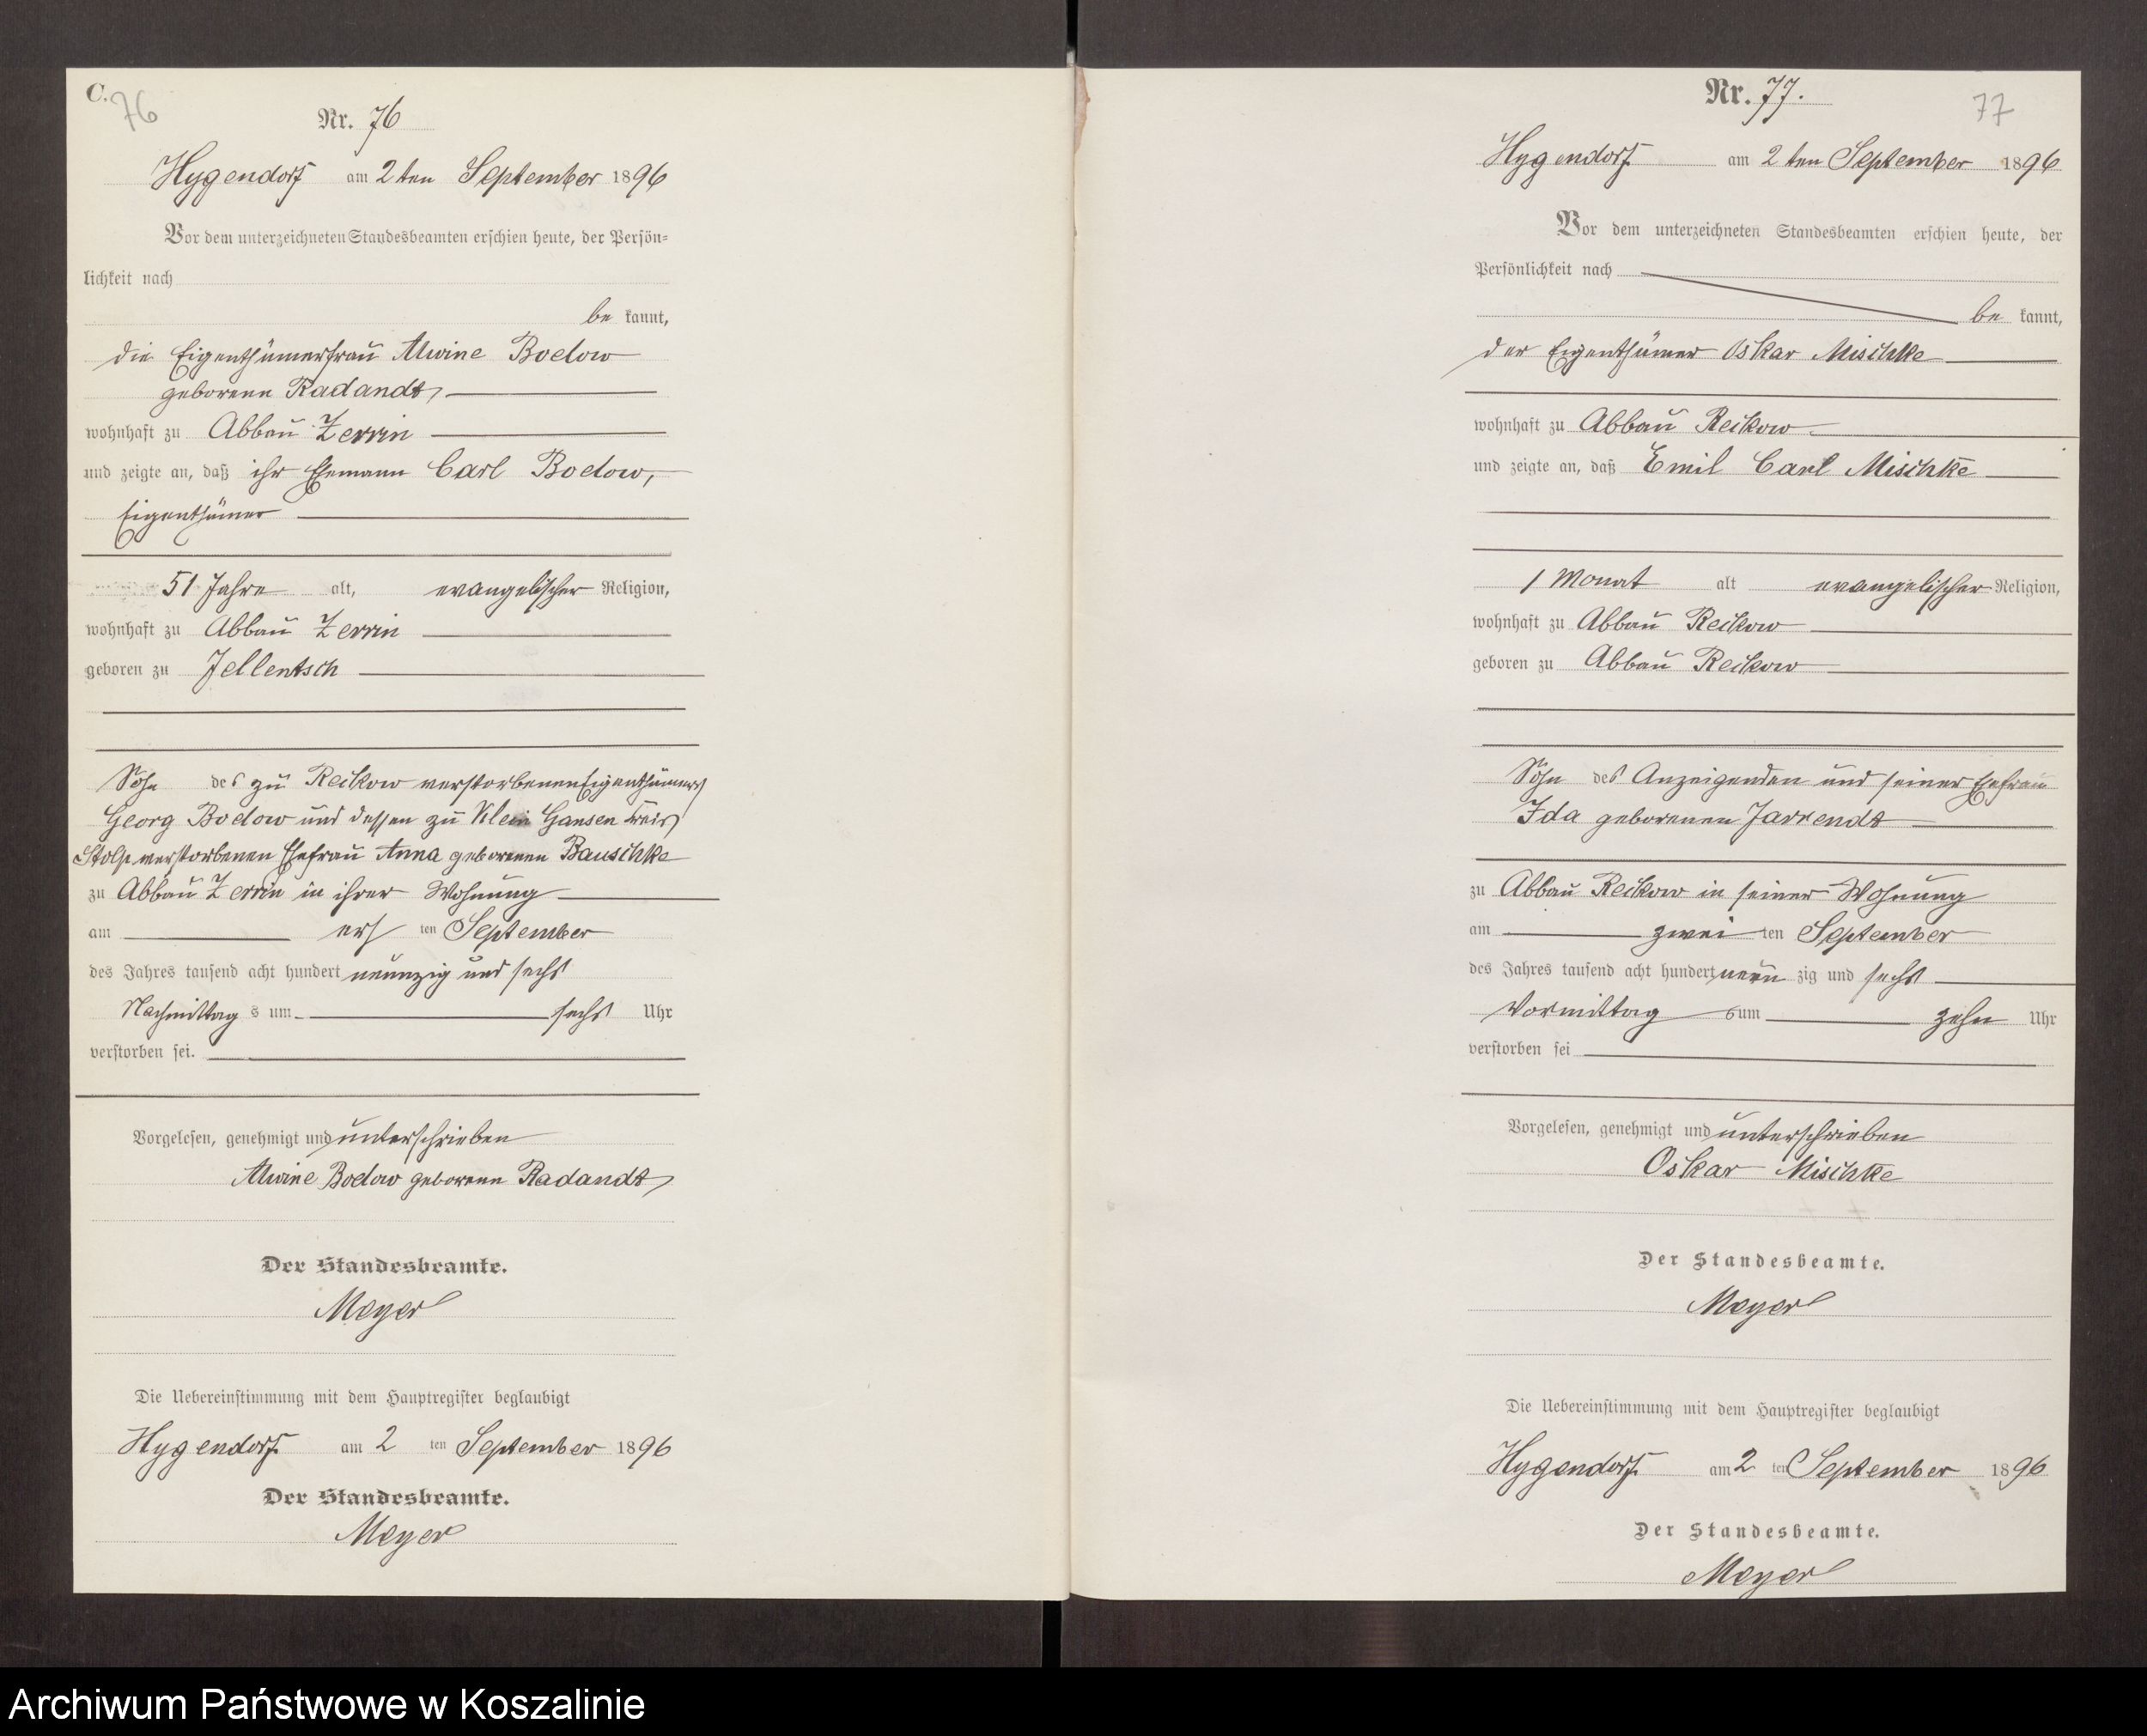 C.
76
Nr. 76
Hygendorf am 2ten September 1896
Vor dem unterzeichneten Standesbeamten erschien heute, der Persön=
lichkeit nach
be kannt,
die Eigenthümerfrau Alwine Bodow
geborene Radandt,
wohnhaft zu Abbau Zerrin
und zeigte an, daß ihr Ehemann Carl Bodow,
Eigenthümer
51 Jahre alt, evangelischer Religion,
wohnhaft zu Abbau Zerrin
geboren zu Jellentsch
Sohn des zu Reikow verstorbenen Eigenthümers
Georg Bodow und dessen zu Klein Gansen Kreis
Stolp verstorbenen Ehefrau Anna geborenen Bauschke
zu Abbau Zerrin in ihrer Wohnung
am ers ten September
des Jahres tausend acht hundert neunzig und sechs
Nachmittag s um sechs Uhr
verstorben sei.
Vorgelesen, genehmigt und unterschrieben
Alwine Bodow geborene Radandt
Der Standesbeamte.
Meyer
Die Uebereinstimmung mit dem Hauptregister beglaubigt
Hygendorf am 2 ten September 1896
Der Standesbeamte.
Meyer
Nr. 77.
77
Hygendorf am 2ten September 1896
Vor dem unterzeichneten Standesbeamten erschien heute, der
Persönlichkeit nach
be kannt,
der Eigenthümer Oskar Mischke
wohnhaft zu Abbau Reikow
und zeigte an, daß Emil Carl Mischke
1 Monat alt evangelischer Religion,
wohnhaft zu Abbau Reikow
geboren zu Abbau Reikow
Sohn des Anzeigenden und seiner Ehefrau
Ida geborenen Jarrendt
zu Abbau Reikow in seiner Wohnung
am zwei ten September
des Jahres tausend acht hundert neun zig und sechs
Vormittag s um zehn Uhr
verstorben sei
Vorgelesen, genehmigt und unterschrieben
Oskar Mischke
Der Standesbeamte.
Meyer
Die Uebereinstimmung mit dem Hauptregister beglaubigt
Hygendorf am 2 ten September 1896
Der Standesbeamte.
Meyer
Archiwum Państwowe w Koszalinie